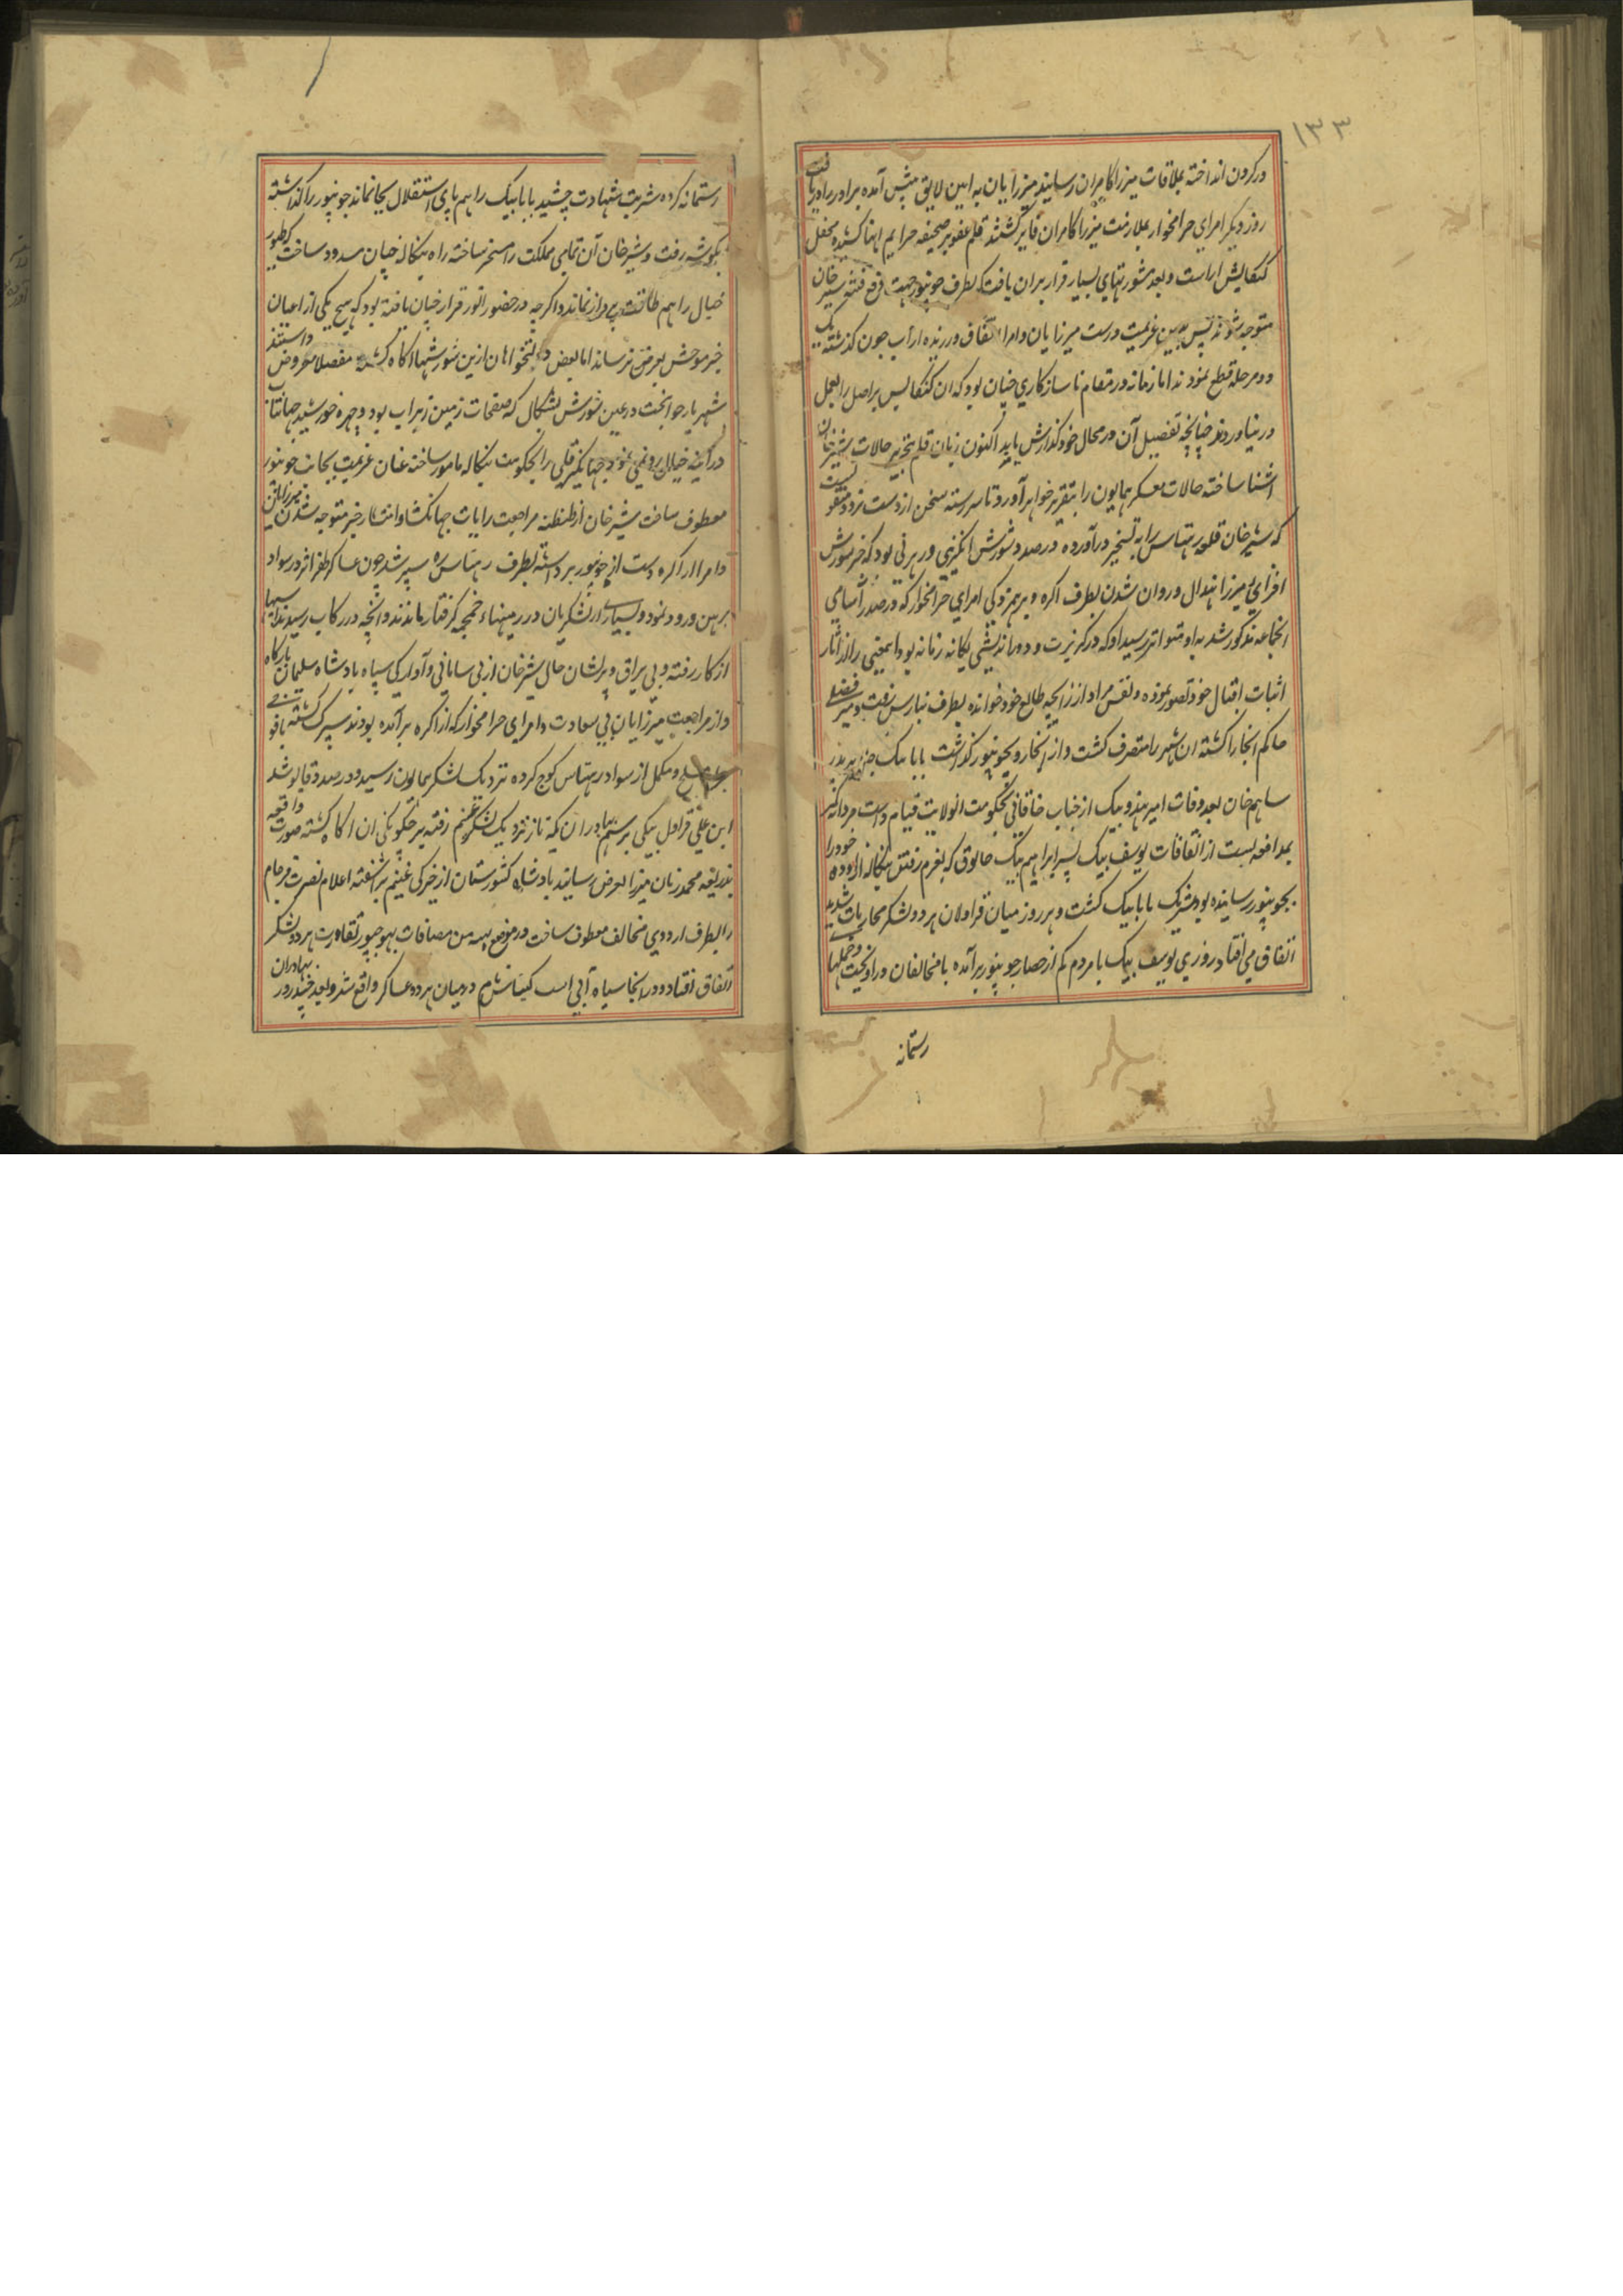 ۱۳۳
در کردن انداخته بملاقات میرزا کامران رسانید میرزایان به ایین لایق پیش آمده برادر را دریافت
روز دیگر امرای حرامخوار بملازمت میرزا کامران فایز کشتند قلم عفو بر صحیفه جرایم اینها کشیده محفل
کنکایش اراست و بعد مشورتهای بسیار قرار بران یافت که بطرف جونپور جهت رفع فتنه شیرخان
متوجه شوند پس بدین عزیمت درست میرزایان و امرا اتفاق ورزیده از آب جون کذشته یک
دو مرحله قطع نمودند اما زمانه در مقام ناسازکاری چنان بود که ان کنکایس بر اصل را بعمل
در نیاوردند چنانچه تفصیل آن در محال خود کذارش یابد اکنون زبان قلم بتحریر حالات شیرخان
اشنا ساخته حالات معسکر همایون را بتقریر خواهد آورد تا سر رسته سخن از دست نرود منقولست
که شیرخان قلعه رهتاس را به تسخیر درآورده درصدد شورش انکیزی و رهزنی بود که خبر شورش
افزای میرزا هندال و روان شدن بطرف اکره و برهمزدکی امرای حرامخوار که در صدر اسامی
انجماعه مذکور شد به او متواتر رسید او که در کربزیت و دوراندیشی یکانه زمانه بود اینمعنی را از اثار
اثبات اقبال خود تصور نموده و نقش مراد از زایچه طالع خود خوانده بطرف بنارس رفت و میر فضلی
حاکم انجا را کشته ان شهر را متصرف کشت و از انجا رو بجونپور کذاشت بابا بیک جلایر پدر
ساهم خان بعد وفات امیر هندو بیک از جناب خاقانی بحکومت انولایت قیام داشت مردانه کمر
بمدافعه بست از اتفاقات یوسف بیک پسر ابراهیم بیک چابوق که بعزم رفتن بنکاله از اوده خود را
بجونپور رسانیده بود شریک بابا بیک کشت و هر روز میان قراولان هر دو لشکر محاربات شدید
اتفاق می افتاد روزی یوسف بیک با مردم کم از حصار جونپور برآمده با مخالفان در اویخت و حملهای
رستمانه
رستمانه کرده شربت شهادت چشید بابا بیک را هم پای استقلال بجا نماند جونپور را کذاشته
بکوشه رفت و شیرخان آن تمامی مملکت را مسخر ساخته راه بنکاله چنان مسدود ساخت که طیور
خیال را هم طاقت پرواز نماند و اکرچه در حضور انور قرار چنان یافته بود که هیچ یکی از اعیان
خبر موحش بعرض نرساند اما بعض دولتخواهان ازین شورشها اکاه کشته مفصلا معروض داستند
شهریار جوانبخت در عین شورش بشکال که صفحات زمین زیر اب بود و چهره خورشید جهانتاب
در آینه خیال رو نمی نمود جهانکیر قلی را بحکومت بنکاله مامور ساخته عنان عزیمت بجانب جونپور
معطوف ساخت شیرخان از طنطنه مراجعت رایات جهانکشا و انتشار خبر متوجه شدن میرزایان
و امرا از اکره دست از جونپور برداشته بطرف رهتاس ره سپر شد چون عساکر ظفر اثر در سواد
برهن ورود نمود و بسیاری از لشکریان در زمینها خمچمه کرفتار ماندند و انچه در رکاب رسیدند اسپها
از کار رفته و بی یراق و پریشان حال شیرخان از بی سامانی و آوارکی سپاه بادشاه سلیمان بارکاه
و از مراجعت میرزایان بی سعادت و امرای حرامخوار که از اکره برآمده بودند سپرک کشته با فوجی
مسلح و مکمل از سواد رهتاس کوچ کرده نزدیک لشکر همایون رسید و درصدد قابو شد
ابن علی قراول بیکی برستم بهادران یکه تاز نزدیک لشکر غنیم رفته بر چکونکی ان اکاه کشته صورت واقعه
بذریعه محمد زمان میرزا بعرض رسانید بادشاه کشورستان از خیرکی غنیم براشفته اعلام نصرت فرجام
را بطرف اردوی مخالف معطوف ساخت در موضع بهیه من مضافات بهوجپور تقارب هر دو لشکر
اتفاق افتاد و در انجا سیاه آبی است کینانس نام در میان هر دو عساکر واقع شد و بعد چند روز بهادران